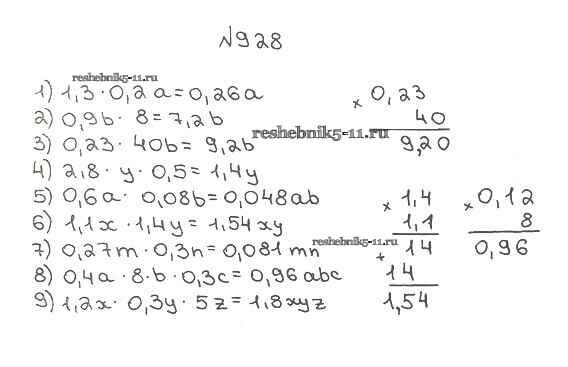 №928
reshebnik5-11.ru
1) 1,3 · 0,2a = 0,26a
2) 0,9b · 8 = 7,2b
3) 0,23 · 40b = 9,2b
4) 2,8 · y · 0,5 = 1,4y
5) 0,6a · 0,08b = 0,048ab
6) 1,1x · 1,4y = 1,54xy
7) 0,27m · 0,3n = 0,081mn
8) 0,4a · 8 · b · 0,3c = 0,96abc
9) 1,2x · 0,3y · 5z = 1,8xyz
× 0,23
40
9,20
reshebnik5-11.ru
× 1,4
1,1
+ 14
14
1,54
reshebnik5-11.ru
× 0,12
8
0,96